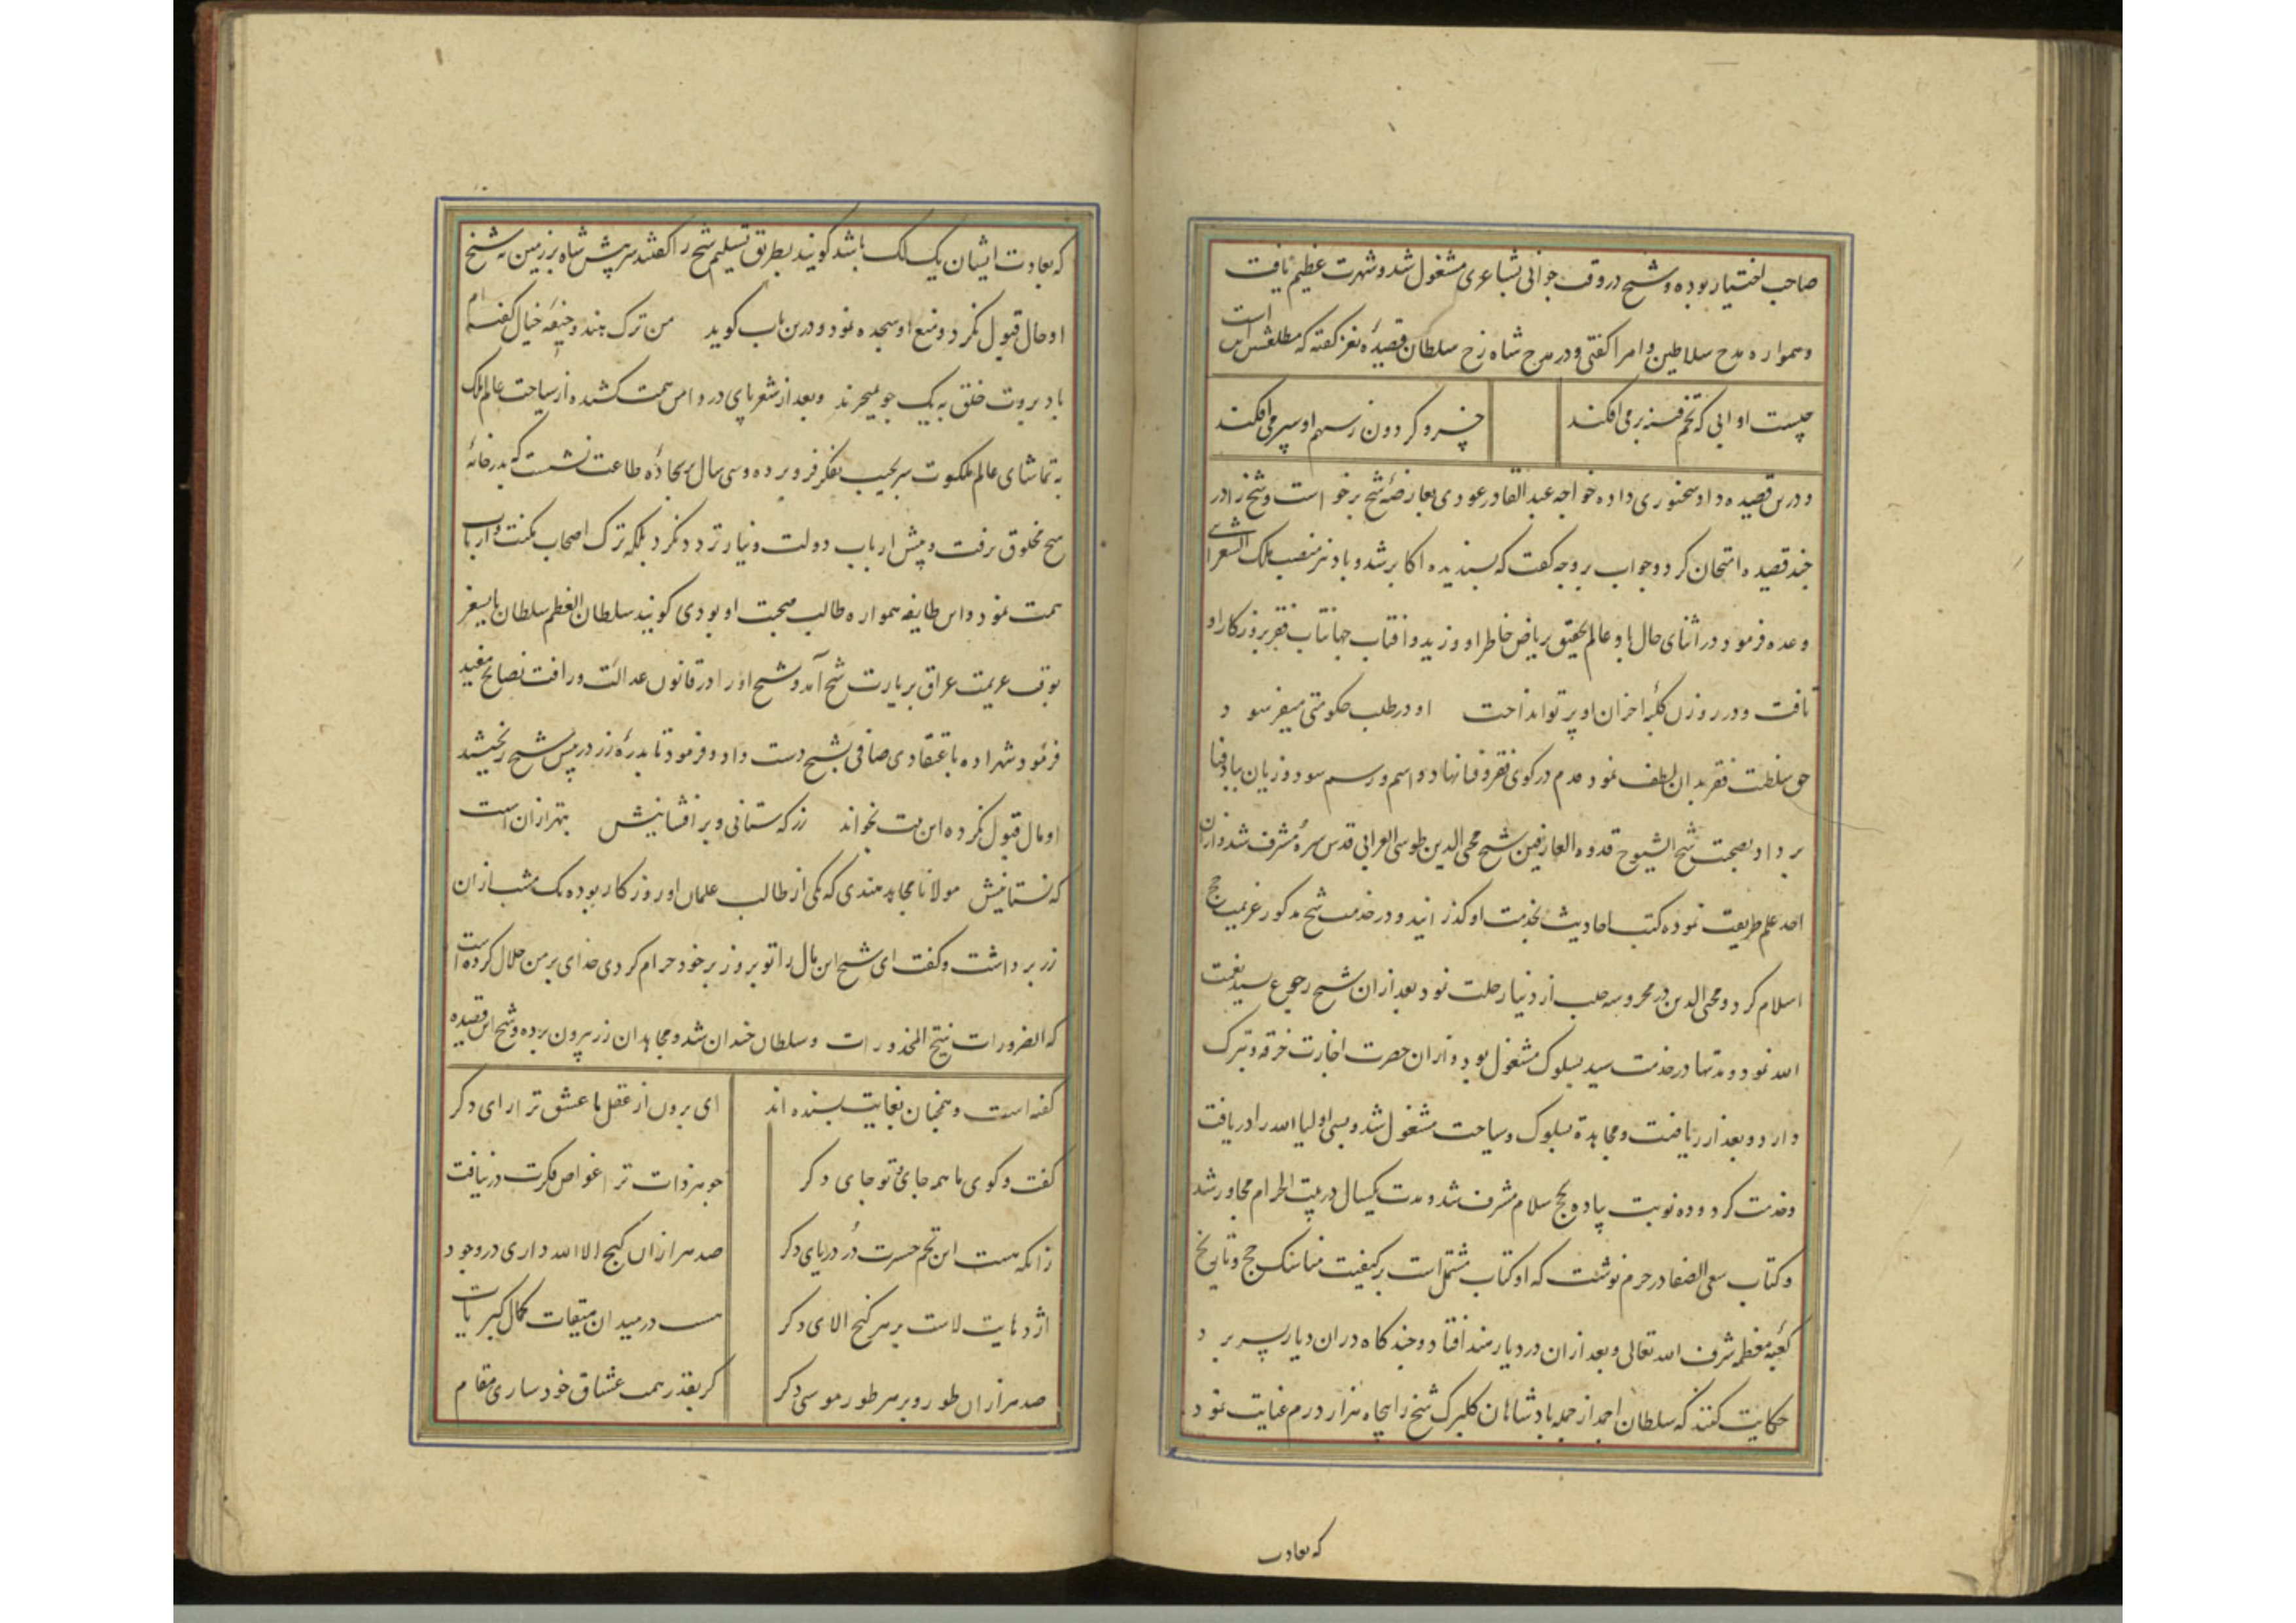 صاحب اختیار بوده و شیخ در وقت جوانی بشاعری مشغول شد و شهرت عظیم یافت
و همواره مدح سلاطین و امرا گفتی و در مدح شاه رخ سلطان قصیدهٔ نغز گفته که مطلعش این است
چیست او ابی که تخم فتنه بر می افکند
خسرو گردون ز سهم او سپر می افکند
و درین قصیده داد سخنوری داده خواجه عبدالقادر عودی بمعارضهٔ شیخ برخواست و شیخ را در
چند قصیده امتحان کرد و جواب بر وجه گفت که پسندیده اکابر شد و باد نیز منصب ملک الشعرائی
وعده فرمود و در اثنای حال باد عالم تحقیق بریاض خاطر او وزید و افتاب جهانتاب فقر بروزکار او
تافت و در روزن کلبهٔ احزان او پرتو انداخت او در طلب حکومتی میفرسود
حق سلطنت فقر بدان لطف نمود قدم در کوی فقر و فنا نهاد و اسم و رسم سود و زیان بباد فنا
بر داد بصحبت شیخ الشیوخ قدوه العارفین شیخ محی الدین طوسی الغزالی قدس سره مشرف شد و ازان
اخذ علم طریقت نموده کتب احادیث بخدمت او گذرانید و در خدمت شیخ مذکور عزیمت حج
اسلام کرد و محی الدین در محروسه حلب از دنیا رحلت نمود بعد ازان شیخ رجوع بسید نعمت
الله نمود و مدتها در خدمت سید بسلوک مشغول بود و ازان حضرت اجازت خرقه و تبرک
دارد و بعد از ریاضت و مجاهدة بسلوک و سیاحت مشغول شد و بسی اولیا الله را دریافت
و خدمت کرد و دو نوبت پیاده بحج سلام مشرف شد و مدت یکسال در بیت الحرام مجاور شد
و کتاب سعی الصفا در حرم نوشت که او کتاب مشتمل است بر کیفیت مناسک حج و تاریخ
کعبه معظم شرف الله تعالی و بعد ازان در دیار هند افتاد و چند کاه دران دیار بسر برد
حکایت کنند که سلطان احمد از جمله پادشاهان کلبرک شیخ را پنجاه هزار درم عنایت نمود
که بعادت
که بعادت ایشان یک لک باشد گویند بطریق تسلیم شیخ را گفتند سر پیش شاه بر زمین نه شیخ
او حال قبول نکرد و منع او سجده نمود و درین باب گوید من ترک هند و جیفه جیپال گفته ام
باد بروت خلق به یک جو نمیخرند و بعد از شعر پای در دامن همت کشیده از سیاحت عالم ملک
به تماشای عالم ملکوت سر بجیب تفکر فرو برده و سی سال بر سجادهٔ طاعت نشست که بدر خانهٔ
هیچ مخلوق نرفت و پیش ارباب دولت دنیا تردد نکرد بلکه ترک اصحاب مکنت و ارباب
همت نمود و این طایفه همواره طالب صحبت او بودی گویند سلطان اعظم سلطان بایسنغر
بوقت عزیمت عراق بزیارت شیخ آمد و شیخ او را در قانون عدالت و رافت نصایح مفید
فرمود و شهزاده باعتقادی صافی بشیخ دست داد و فرمود تا بدرهٔ زر در پیش شیخ ریختند
او مال قبول نکرده این بیت بخواند زر که ستانی و بر افشانیش بهتر ازان است
که نستانیش مولانا مجاهد هندی که یکی از طالب علمان او روزکار بوده یک مشت ازان
زر برداشت و گفت ای شیخ این مال را تو بر وز بر خود حرام کردی خدای بر من حلال کرده است
که الضرورات تبیح المحذورات و سلطان خندان شد و مجاهد ان زر بیرون برده و شیخ این قصیده
گفته است و همچنان بغایت پسندیده اند
ای برون از عقل ما عشق ترا رای دگر
گفت و کوی ما همه جای و تو جای دگر
جوهر ذات ترا غواص فکرت در نیافت
زانکه هست این تخم حسرت در دریای دگر
صد هزاران گنج الا الله داری در وجود
اژدهایت لاست بر هر گنج الای دگر
هست در میدان میقات کمال کبریات
صد هزاران طور و بر هر طور موسی دگر
گر بقدر همت عشاق خود سازی مقام